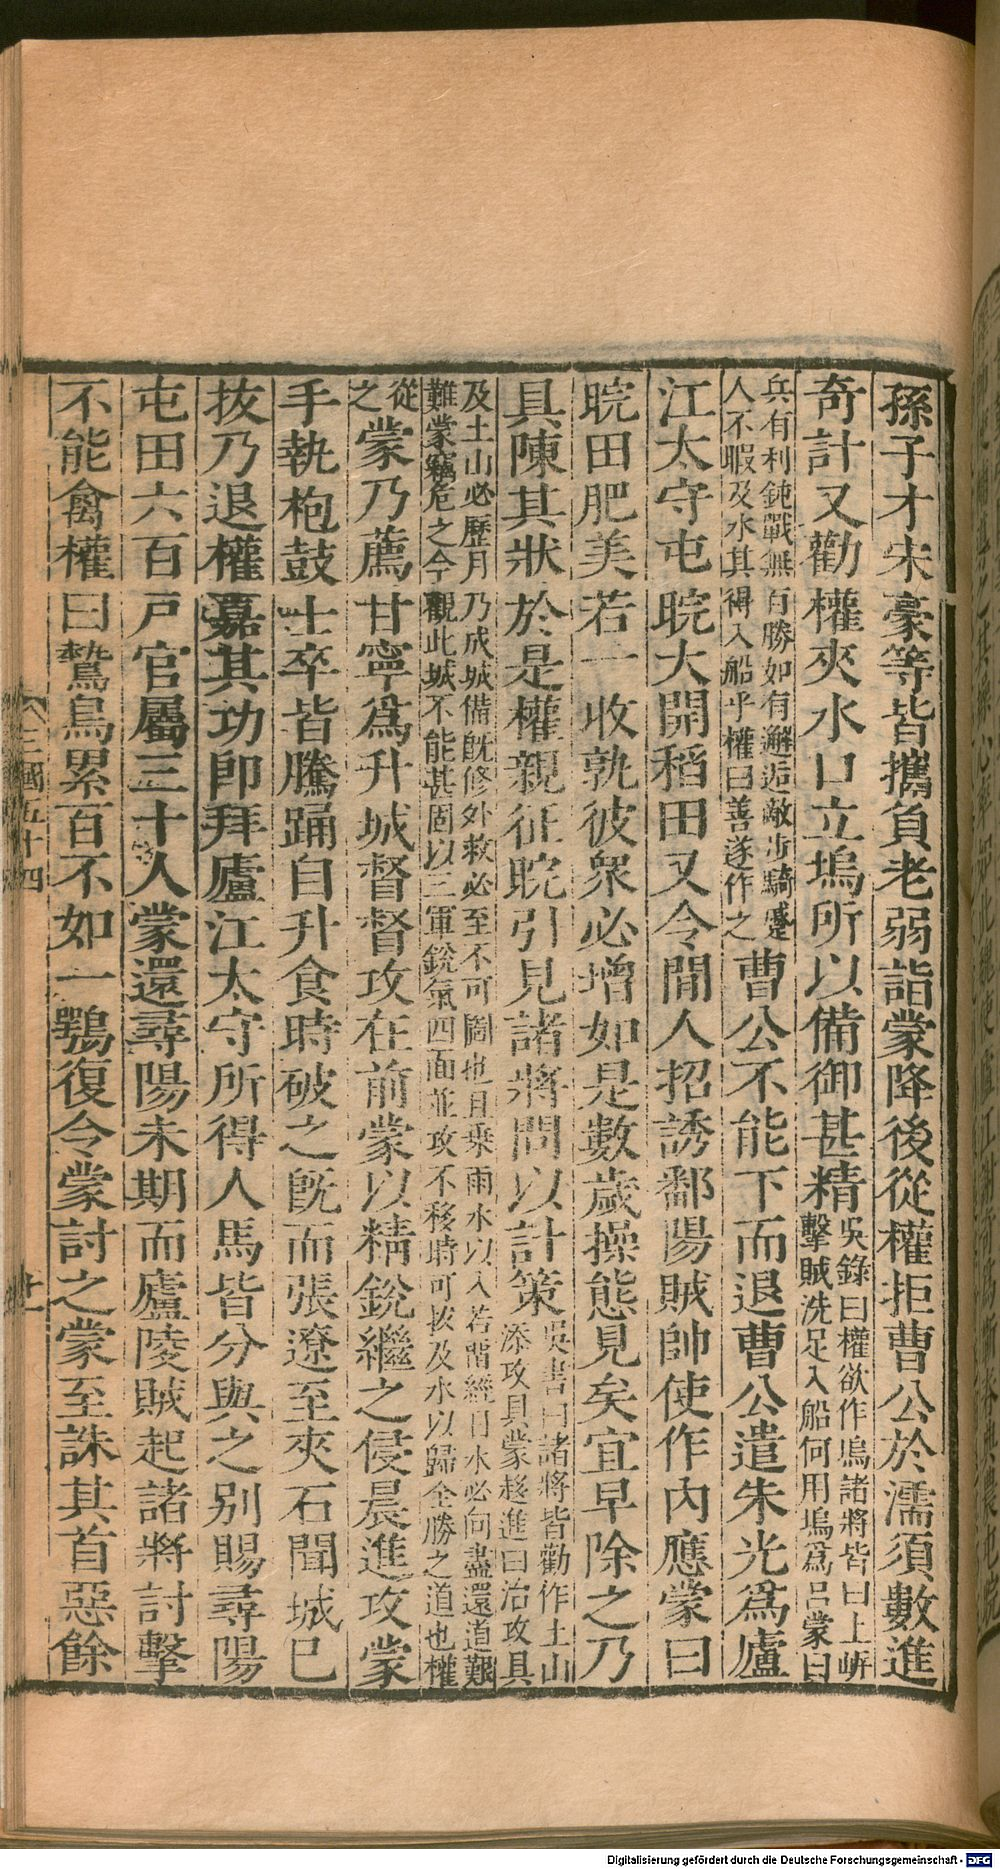 孫子才宋豪等皆攜負老弱詣蒙降後從權拒曹公於濡須數進
奇計又勸權夾水口立塢所以備御甚精吳錄曰權欲作塢諸將皆曰上岍擊賊洗足入船何用塢爲呂蒙曰
兵有利鈍戰無百勝如有邂逅敵步騎蹙人不暇及水其得入船乎權曰善遂作之曹公不能下而退曹公遣朱光爲廬
江太守屯睆大開稻田又令閒人招誘鄱陽賊帥使作内應蒙曰
睆田肥美若一收孰彼衆必增如是數歲操態見矣宜早除之乃
具陳其狀於是權親征睆引見諸將問以計策吳書曰諸將皆勸作土山添攻具蒙趍進曰治攻具
及土山必歷月乃成城備旣修外救必至不可圖也且乗雨水以入若畱經日水必向盡還道艱難蒙竊危之今觀此城不能甚固以三軍銳氣四面並攻不移時可拔及水以歸全勝之道也權
從之蒙乃薦甘寧爲升城督督攻在前蒙以精銳繼之侵晨進攻蒙
手執枹鼓士卒皆騰踊自升食時破之旣而張遼至夾石聞城已
拔乃退權嘉其功即拜廬江太守所得人馬皆分與之别賜尋陽
屯田六百戸官屬三十人蒙還尋陽未期而廬陵賊起諸將討擊
不能禽權曰鷙鳥累百不如一鶚復令蒙討之蒙至誅其首惡餘
三國五十四
十一
Digitalisierung gefördert durch die Deutsche Forschungsgemeinschaft - DFG